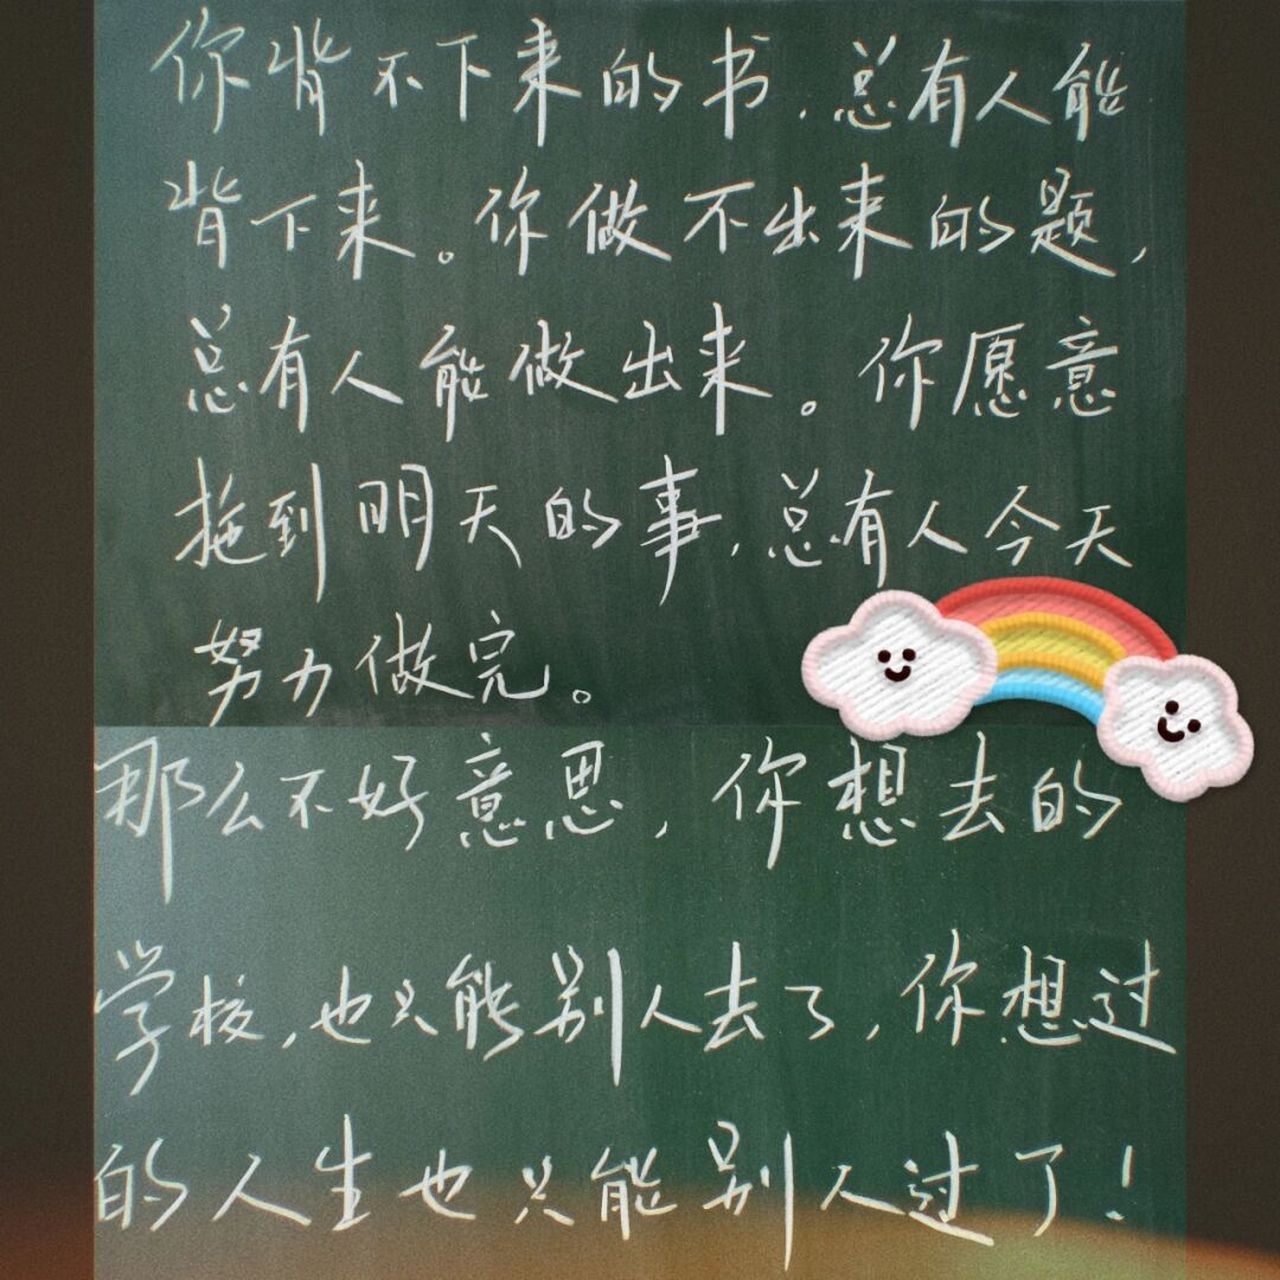 你背不下来的书,总有人能
背下来。你做不出来的题,
总有人能做出来。你愿意
拖到明天的事,总有人今天
努力做完。
那么不好意思,你想去的
学校,也只能别人去了,你想过
的人生也只能别人过了!